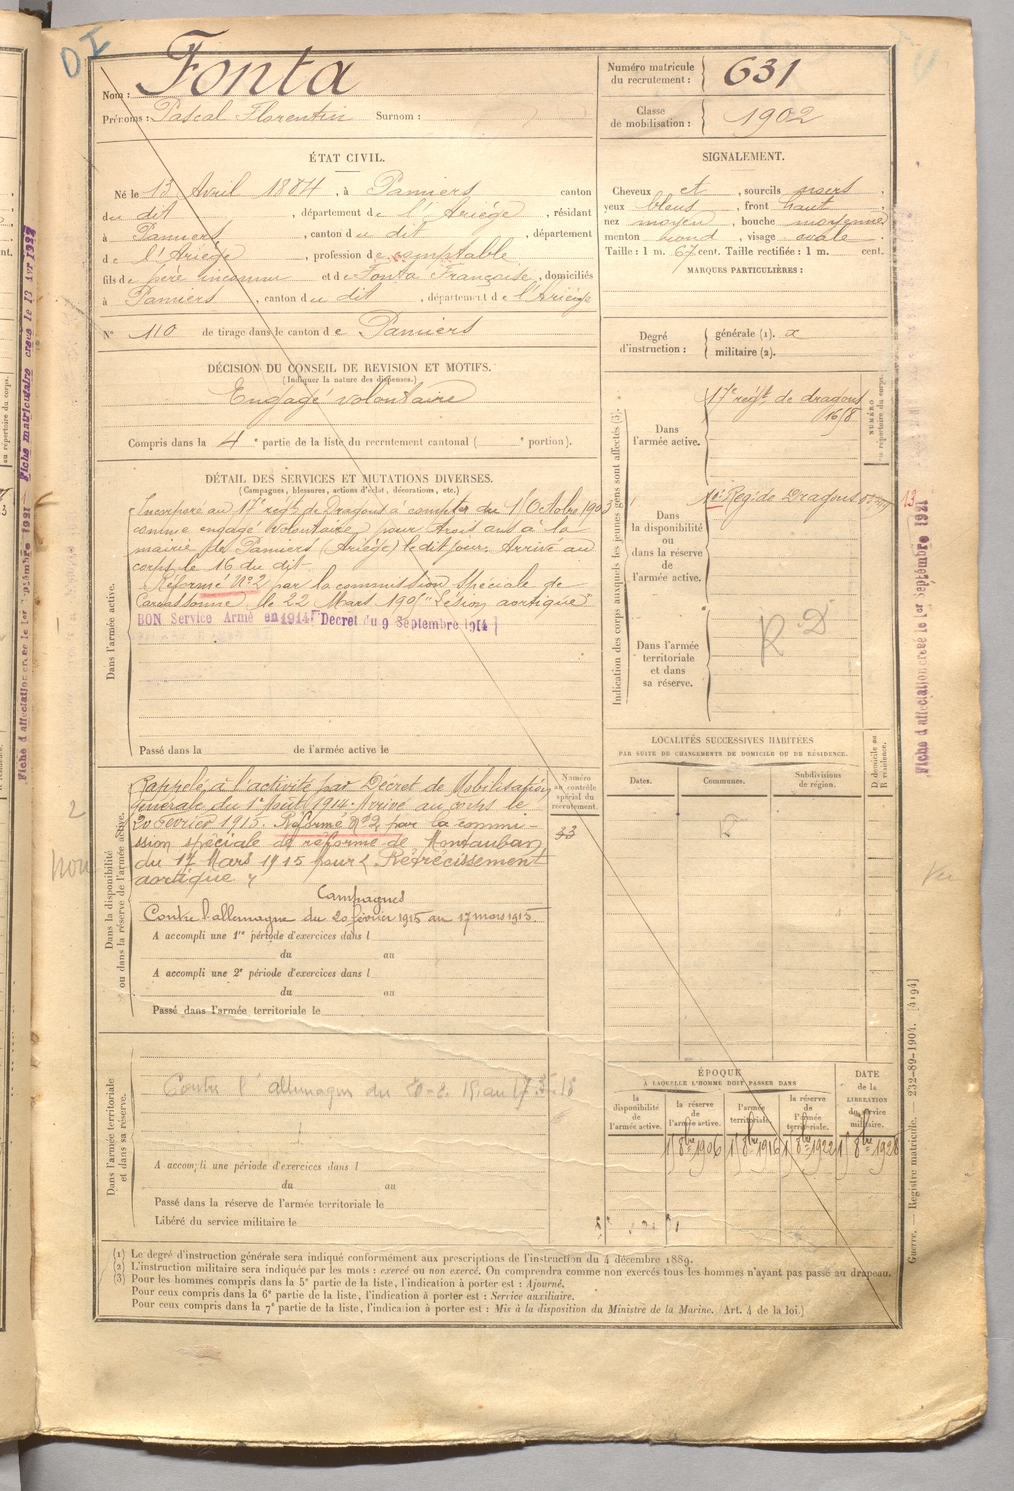 DI
Nom : Fonta
Prénoms : Pascal Florentin Surnom :
Numéro matricule du recrutement : 631
Classe de mobilisation : 1902
ÉTAT CIVIL.
Né le 13 Avril 1884, à Pamiers canton
du dit, département de l'Ariège, résidant
à Pamiers, canton du dit, département
de l'Ariège, profession de comptable
fils de père inconnu et de Fonta Françoise, domiciliés
à Pamiers, canton du dit, département de l'Ariège
N° 110 de tirage dans le canton de Pamiers
SIGNALEMENT.
Cheveux et, sourcils noirs,
yeux bleus, front haut
nez moyen, bouche moyenne
menton rond, visage ovale.
Taille : 1 m. 67 cent. Taille rectifiée : 1 m. cent.
MARQUES PARTICULIÈRES :
Degré d'instruction : générale (1). 2
militaire (2).
DÉCISION DU CONSEIL DE REVISION ET MOTIFS.
(Indiquer la nature des dispenses.)
Engagé volontaire
Compris dans la 4e partie de la liste du recrutement cantonal ( e portion).
DÉTAIL DES SERVICES ET MUTATIONS DIVERSES.
(Campagnes, blessures, actions d'éclat, décorations, etc.)
Dans l'armée active.
Incorporé au 17e régt de Dragons à compter du 1er Octobre 1903
comme engagé volontaire pour trois ans à la
mairie de Pamiers (Ariège) le dit jour. Arrivé au
corps le 16 du dit.
Réformé N°2 par la commission spéciale de
Carcassonne le 22 Mars 190 "Lésion aortique"
BON Service Armé en 1914 [Decret du 9 Septembre 1914]
Passé dans la de l'armée active le
Indication des corps auxquels les jeunes gens sont affectés (3).
NUMÉRO au répertoire du corps.
Dans l'armée active.
17e régt de dragons
1618
Dans la disponibilité ou dans la réserve de l'armée active.
Rég. de Dragons
13
Dans l'armée territoriale et dans sa réserve.
R D
LOCALITÉS SUCCESSIVES HABITÉES
PAR SUITE DE CHANGEMENTS DE DOMICILE OU DE RÉSIDENCE.
Dates. Communes. Subdivisions de région.
D domicile ou R résidence.
Dans la disponibilité ou dans la réserve de l'armée active.
Numéro au contrôle spécial du recrutement.
33
Rappelé à l'activité par Décret de Mobilisation
générale du 1er Août 1914. Arrivé au corps le
20 Février 1915. Réformé N°2 par la commi-
ssion spéciale de réforme de Montauban
du 17 Mars 1915 pour "Rétrécissement
aortique"
Campagnes
Contre l'allemagne du 20 février 1915 au 17 mars 1915.
A accompli une 1re période d'exercices dans l
du au
A accompli une 2e période d'exercices dans l
du au
Passé dans l'armée territoriale le
2
non
Dans l'armée territoriale et dans sa réserve.
Contre l'allemagne du
A accompli une période d'exercices dans l
du au
Passé dans la réserve de l'armée territoriale le
Libéré du service militaire le
ÉPOQUE
À LAQUELLE L'HOMME DOIT PASSER DANS
la disponibilité de l'armée active.
la réserve de l'armée active.
l'armée territoriale.
la réserve de l'armée territoriale.
DATE de la LIBÉRATION du service militaire.
1er 8bre 1906 1er 8bre 1916 1er 8bre 1922 1er 8bre 1928
(1) Le degré d'instruction générale sera indiqué conformément aux prescriptions de l'instruction du 4 décembre 1889.
(2) L'instruction militaire sera indiquée par les mots : exercé ou non exercé. On comprendra comme non exercés tous les hommes n'ayant pas passé au drapeau.
(3) Pour les hommes compris dans la 5e partie de la liste, l'indication à porter est : Ajourné.
Pour ceux compris dans la 6e partie de la liste, l'indication à porter est : Service auxiliaire.
Pour ceux compris dans la 7e partie de la liste, l'indication à porter est : Mis à la disposition du Ministre de la Marine. (Art. 4 de la loi.)
Guerre. — Registre matricule. — 232-89-1904. [4194]
Fiche d'affectation créée le 1er Septembre 1921
Fiche d'affectation créée le 1er Septembre 1921 — Fiche matriculaire créée le 13 Avr 1922